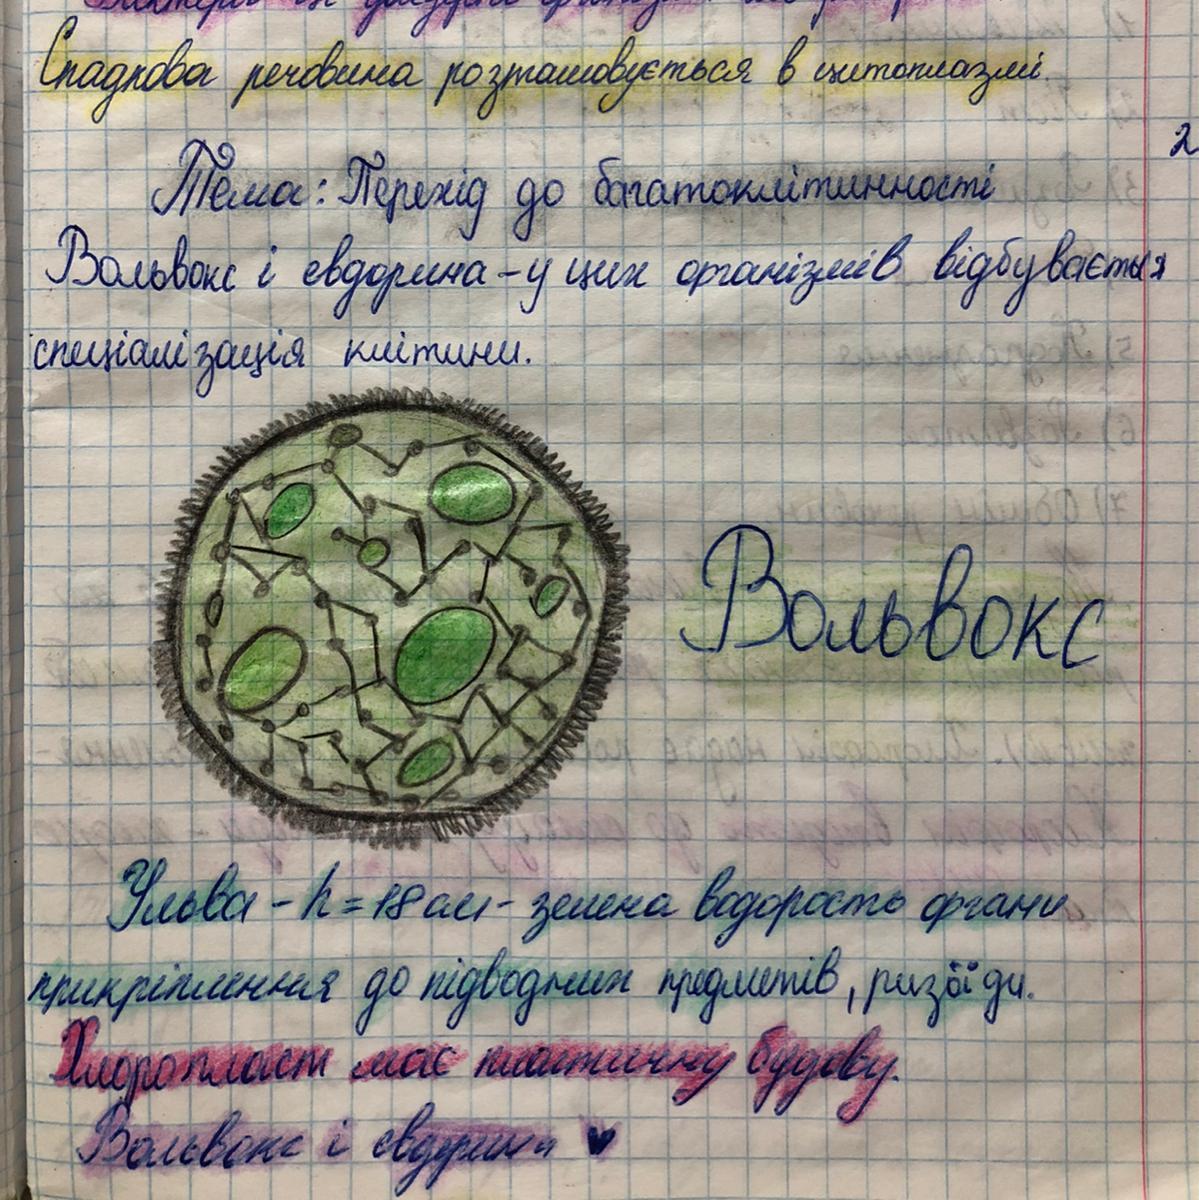 Спадкова речовина розташовується в цитоплазмі
2
Тема: Перехід до багатоклітинності
Вольвокс і евдорина - у цих організмів відбувається
спеціалізація клітини.
Вольвокс
Ульва - h = 18 см - зелена водорость органи
прикріплення до підводних предметів, ризоїди.
Хлоропласт має пластичну будову.
Вольвокс і евдорина